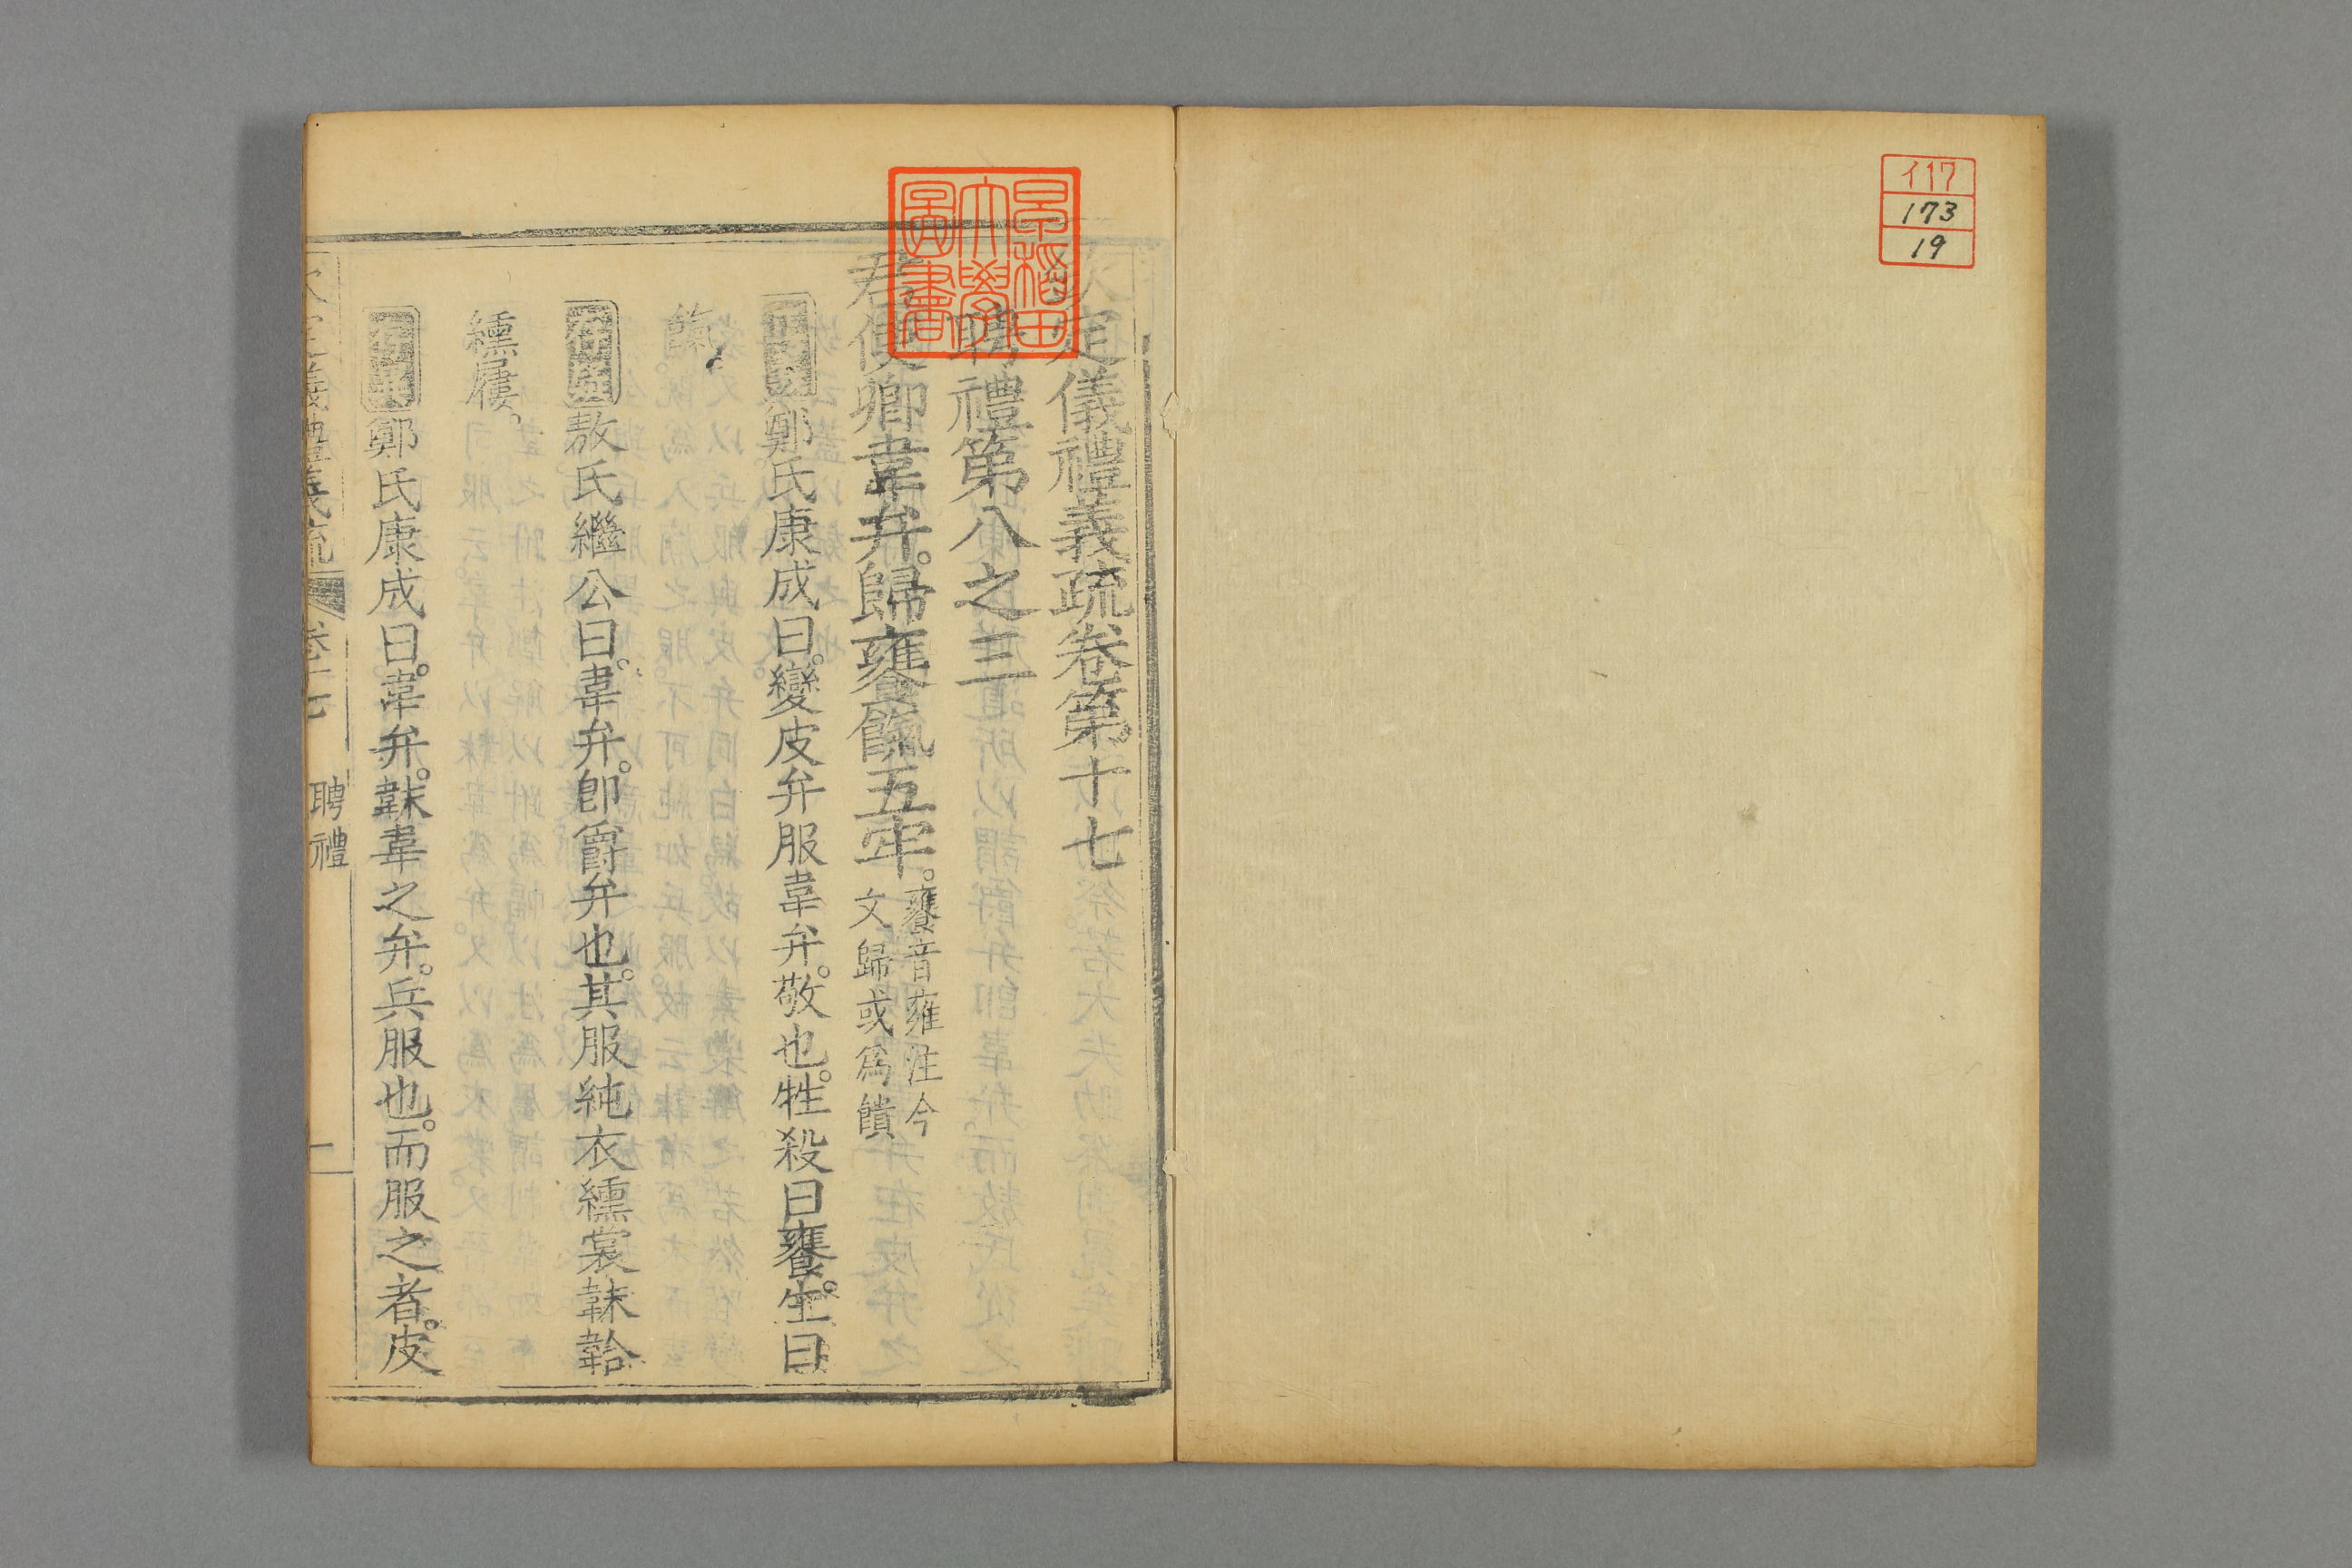 イ17
173
19
早稻田
大學
圖書
欽定儀禮義疏卷第十七
聘禮第八之三
君使卿韋弁。歸饔餼五牢。
饔音雍注今
文歸或爲饋
鄭氏康成曰。變皮弁服韋弁。敬也。牲殺曰饔。生曰
餼。
敖氏繼公曰。韋弁。卽爵弁也。其服純衣纁裳韎韐
纁屨。
鄭氏康成曰。韋弁。韎韋之弁。兵服也。而服之者。皮
欽定儀禮義疏 卷十七 聘禮 一